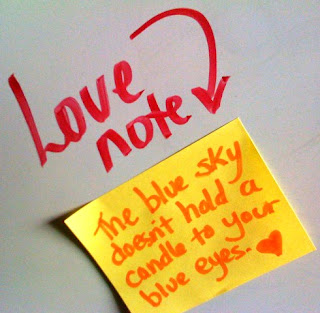 Love
note
The blue sky
doesn't hold a
candle to your
blue eyes.